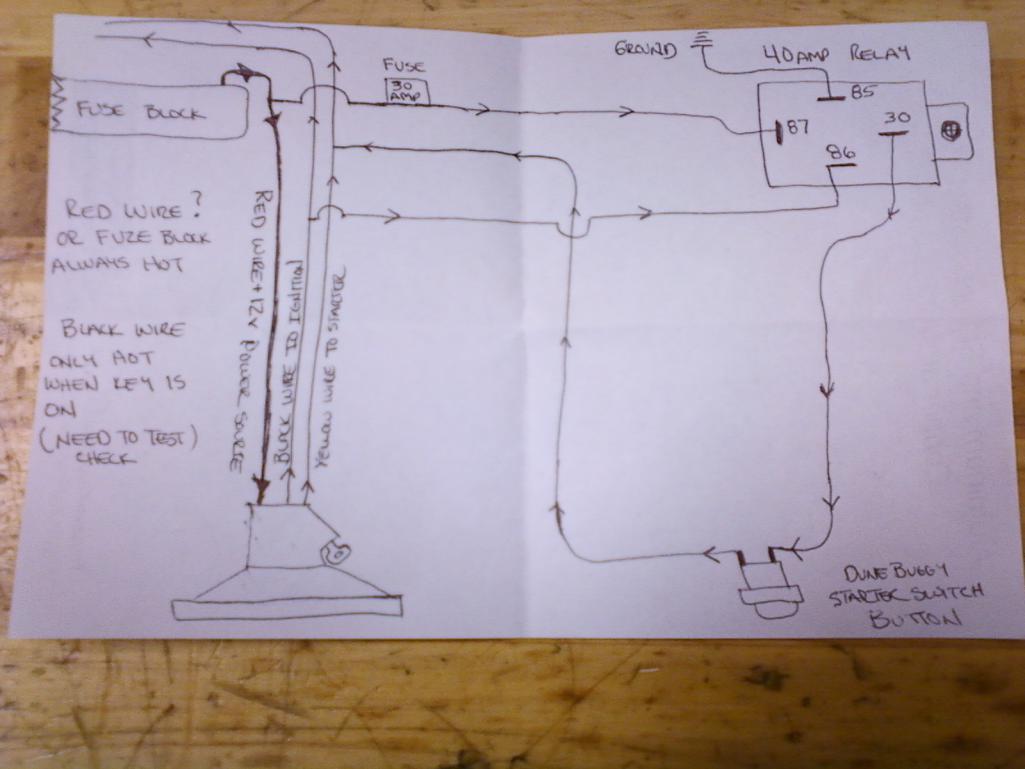 GROUND
40AMP RELAY
FUSE
30
AMP
85
87
30
86
FUSE BLOCK
RED WIRE?
OR FUZE BLOCK
ALWAYS HOT
BLACK WIRE
ONLY HOT
WHEN KEY IS
ON
(NEED TO TEST)
CHECK
RED WIRE + 12V POWER SOURSE
BLACK WIRE TO IGNITION
YELLOW WIRE TO STARTER
DUNE BUGGY
STARTER SWITCH
BUTTON